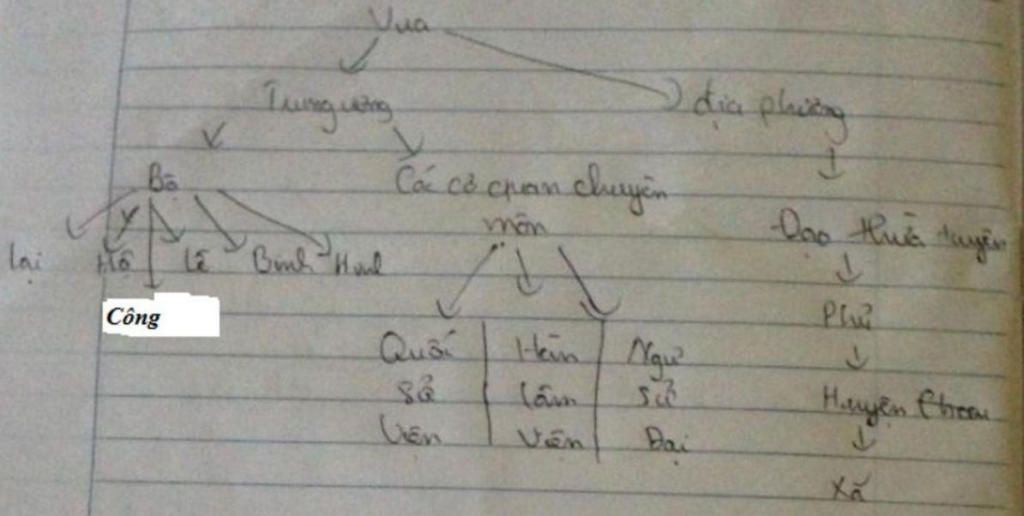 Vua
Trung ương địa phương
Bộ Các cơ quan chuyên
môn Đạo thừa tuyên
Lại Hộ Lễ Binh Hình
Công Phủ
Quốc Hàn Ngự
Sử lâm sử
Viện Viện Đài
Huyện Châu
Xã